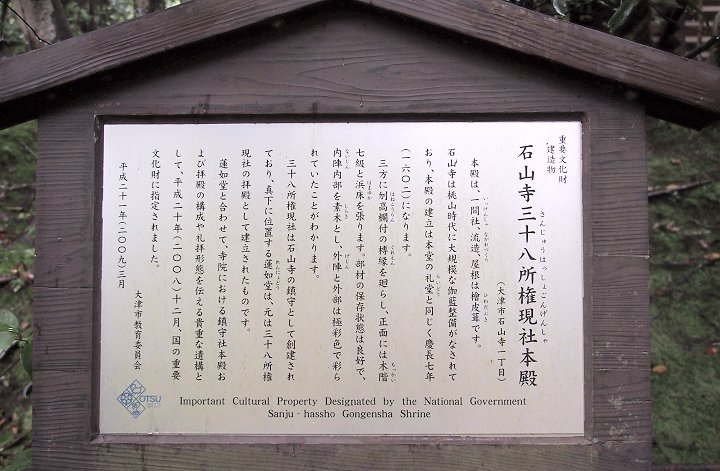 重要文化財
建造物
石山寺三十八所権現社本殿
さんじゅうはっしょごんげんしゃ
(大津市石山寺一丁目)
本殿は、一間社、流造、屋根は檜皮葺です。
石山寺は桃山時代に大規模な伽藍整備がなされて
おり、本殿の建立は本堂の礼堂と同じく慶長七年
(一六〇二)になります。
三方に刎高欄付の榑縁を廻らし、正面には木階
七級と浜床を張ります。部材の保存状態は良好で、
内陣内部を素木とし、外陣と外部は極彩色で彩ら
れていたことがわかります。
三十八所権現社は石山寺の鎮守として創建され
ており、真下に位置する蓮如堂は、元は三十八所権
現社の拝殿として建立されたものです。
蓮如堂と合わせて、寺院における鎮守社本殿お
よび拝殿の構成や礼拝形態を伝える貴重な遺構と
して、平成二十年(二〇〇八)十二月、国の重要
文化財に指定されました。
平成二十一年(二〇〇九)三月
大津市教育委員会
OTSU
Important Cultural Property Designated by the National Government
Sanju - hassho Gongensha Shrine